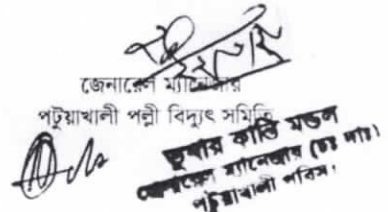 জেনারেল ম্যানেজার
পটুয়াখালী পল্লী বিদ্যুৎ সমিতি
তুষার কান্তি মন্ডল
জেনারেল ম্যানেজার (চঃ দাঃ)
পটুয়াখালী পবিস।